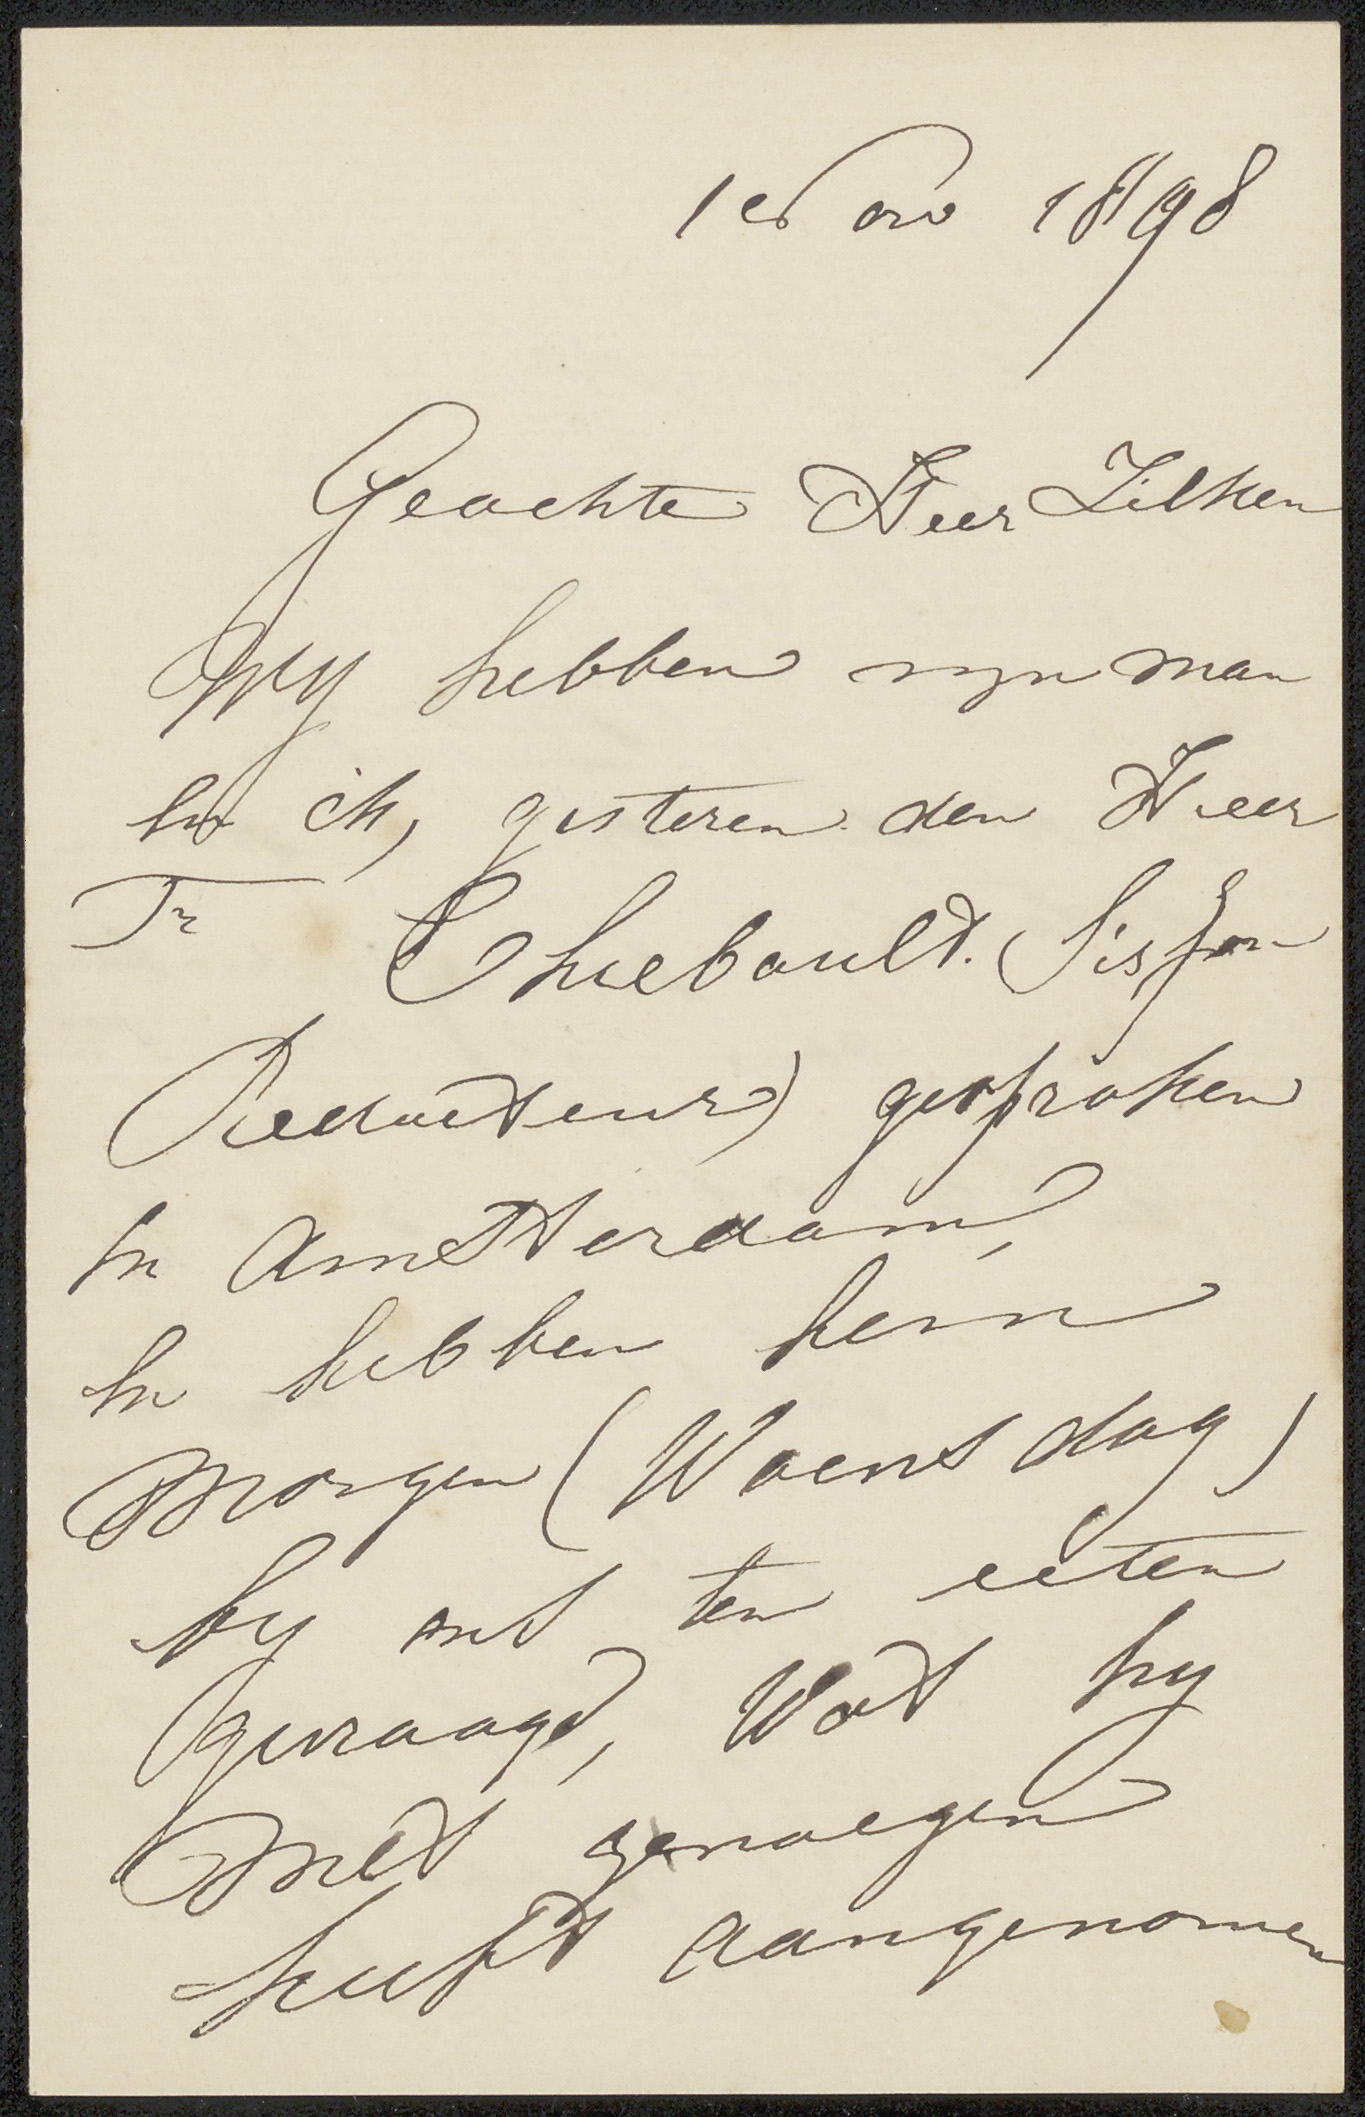 1 Nov 1898
Geachte Heer Zilken
Wy hebben myn man
en ik, gisteren den Heer
Tr Thiebault. (Sisson
Redacteur) gesproken
in Amsterdam,
en hebben hem
morgen (Woensdag)
by ons ten eeten
gevraagd, Wat hy
met genoegen
heeft aangenomen